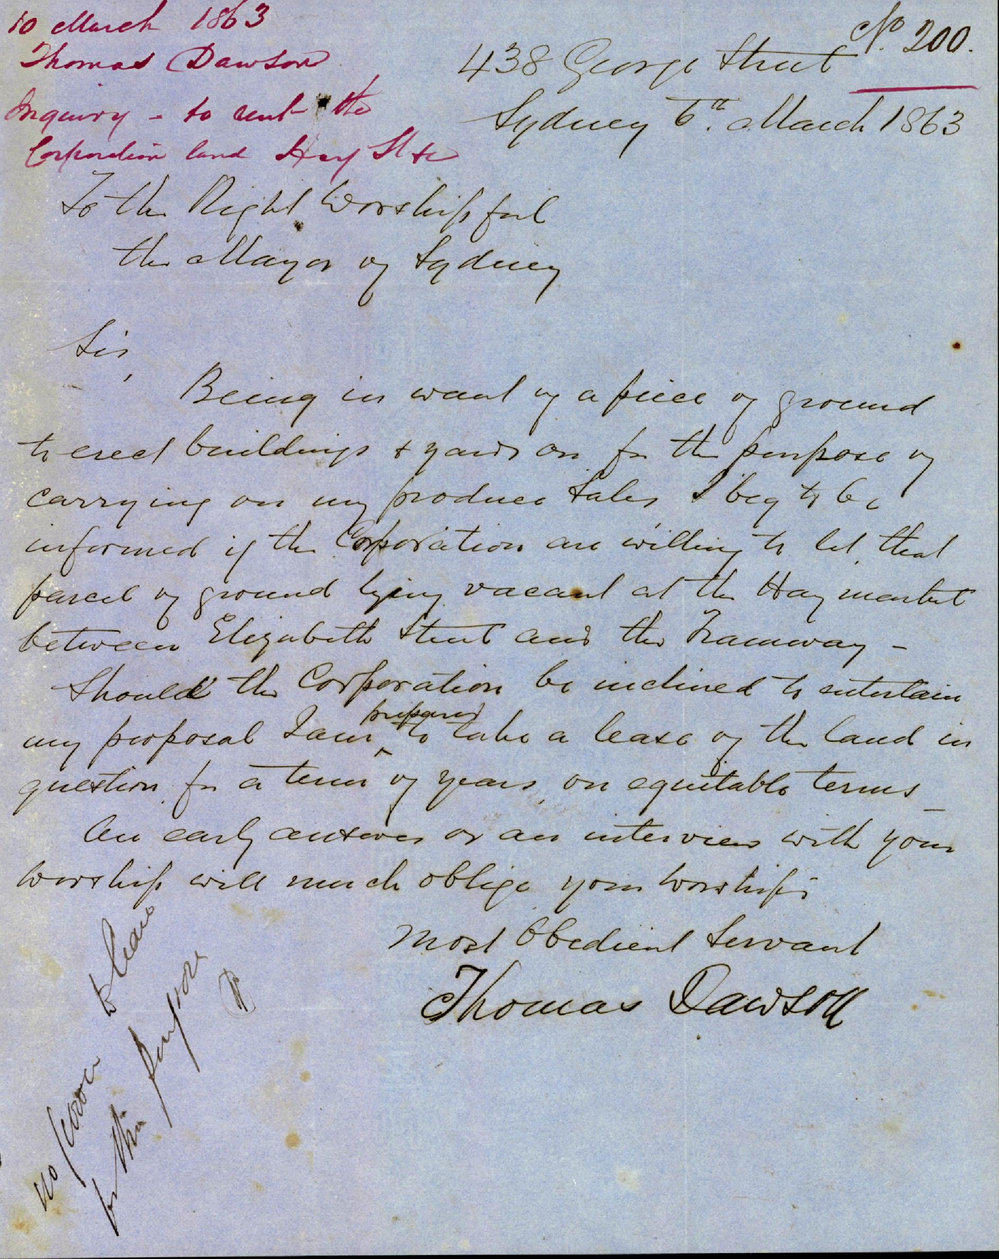 10 March 1863
Thomas Dawson
Inquiry - to rent the
Corporation land Hay St &c
No. 200.
438 George Street
Sydney 6th. March 1863
To the Right Worshipful
the Mayor of Sydney
Sir,
Being in want of a piece of ground
to erect buildings & yards on for the purpose of
carrying on my produce Sales I beg to be
informed if the Corporation are willing to let that
parcel of ground lying vacant at the Haymarket
between Elizabeth Street and the Tramway -
Should the Corporation be inclined to entertain
my proposal I am prepared to take a lease of the land in
question for a term of years on equitable terms -
An early answer or an interview with your
Worship will much oblige your Worships
Most Obedient Servant
Thomas Dawson
no power to lease
for this purpose